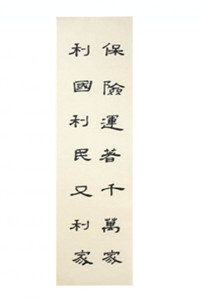 保險運着千萬家
利國利民又利家